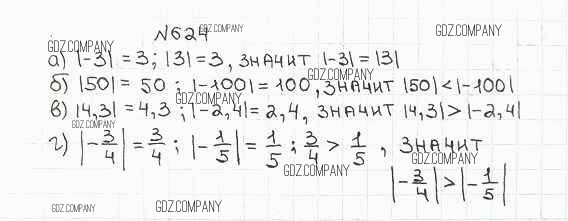 №624 GDZ.COMPANY GDZ.COMPANY
GDZ.COMPANY
а) |-3| = 3; |3| = 3, значит |-3| = |3|
GDZ.COMPANY
б) |50| = 50; |-100| = 100, значит |50| < |-100|
GDZ.COMPANY
в) |4,3| = 4,3; |-2,4| = 2,4, значит |4,3| > |-2,4|
GDZ.COMPANY
г) |-3/4| = 3/4; |-1/5| = 1/5; 3/4 > 1/5, значит
GDZ.COMPANY GDZ.COMPANY
|-3/4| > |-1/5|
GDZ.COMPANY GDZ.COMPANY